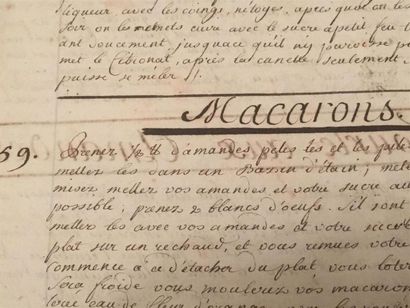 liqueur avec les coings, netoyés, apres quoi on les
Soir on les remets cuire avec le sucre a petit feu
ant doucement, jusquace quil ny paroisse p
met le Citronat, après la canelle seulement
puisse se mêler //.
Macarons.
59. Prenez ½ ℔ d'amandes pelés les et les pilés
mettez les dans un Bassin d'étain; mele
misez mettez vos amandes et votre sucre au
possible; prenez 2 blancs d'oeufs. S'il sont
mettez les avec vos amandes et votre sucre
plat sur un rechaud, et vous remues votre
commence à se détacher du plat vous loter
Sera froide vous moulerez vos macaron
d'orange